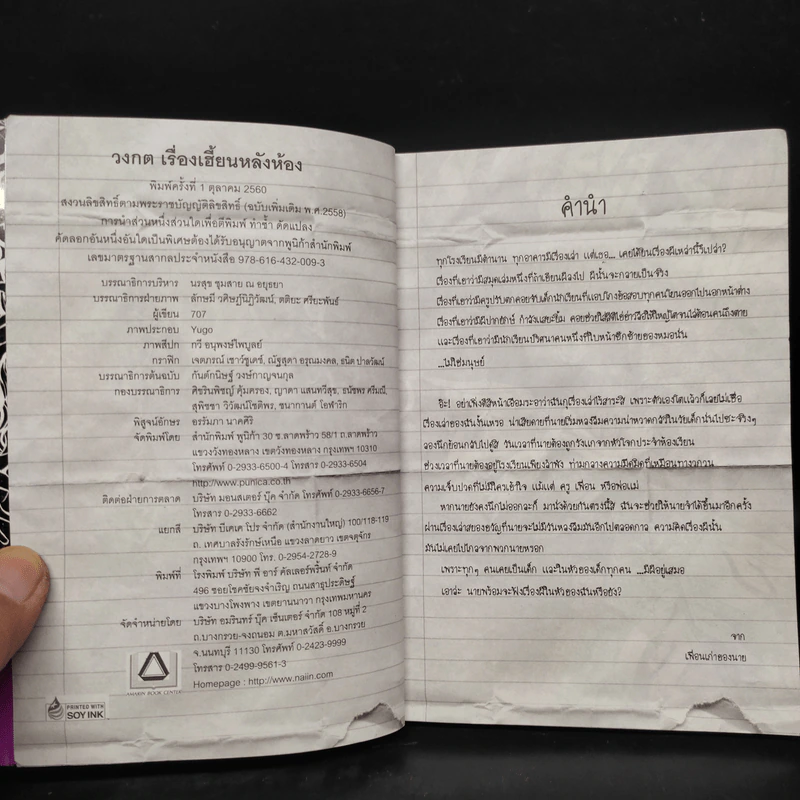 วงกต เรื่องเฮี้ยนหลังห้อง
พิมพ์ครั้งที่ 1 ตุลาคม 2560
สงวนลิขสิทธิ์ตามพระราชบัญญัติลิขสิทธิ์ (ฉบับเพิ่มเติม พ.ศ.2558)
การนำส่วนหนึ่งส่วนใดเพื่อตีพิมพ์ ทำซ้ำ ดัดแปลง
คัดลอกอันหนึ่งอันใดเป็นพิเศษต้องได้รับอนุญาตจากพูนิก้าสำนักพิมพ์
เลขมาตรฐานสากลประจำหนังสือ 978-616-432-009-3
บรรณาธิการบริหาร นรสุข ชุมสาย ณ อยุธยา
บรรณาธิการฝ่ายภาพ ลักษมี วศิษฏ์นิฏิวัฒน์, ตติยะ ศรียะพันธ์
ผู้เขียน 707
ภาพประกอบ Yugo
ภาพสีปก ทวี อนุพงษ์ไพบูลย์
กราฟิก เจตภรณ์ เชาว์ชูเดช์, ณัฐสุดา อรุณมงคล, ธนิต ปาลวัฒน์
บรรณาธิการต้นฉบับ กันต์กนิษฐ์ วงษ์กาญจนกุล
กองบรรณาธิการ ศิขรินพิชญ์ คุ้มตรอง, ญาดา แสนทวีสุข, ธนัชพร ศรีมณี,
สุพิชชา วิวัฒน์โชติพร, ชนากานต์ โอฬาริก
พิสูจน์อักษร อรรัมภา นาคศิริ
จัดพิมพ์โดย สำนักพิมพ์ พูนิก้า 30 ซ.ลาดพร้าว 58/1 ถ.ลาดพร้าว
แขวงวังทองหลาง เขตวังทองหลาง กรุงเทพฯ 10310
โทรศัพท์ 0-2933-6500-4 โทรสาร 0-2933-6504
http://www.punica.co.th
ติดต่อฝ่ายการตลาด บริษัท มอนสเตอร์ บุ๊ค จำกัด โทรศัพท์ 0-2933-6656-7
โทรสาร 0-2933-6662
แยกสี บริษัท บีเคเค โปร จำกัด (สำนักงานใหญ่) 100/118-119
ถ. เทศบาลรังรักษ์เหนือ แขวงลาดยาว เขตจตุจักร
กรุงเทพฯ 10900 โทร. 0-2954-2728-9
พิมพ์ที่ โรงพิมพ์ บริษัท พี อาร์ คัลเลอร์พริ้นท์ จำกัด
496 ซอยโชคชัยจงจำเริญ ถนนสาธุประดิษฐ์
แขวงบางโพงพาง เขตยานนาวา กรุงเทพมหานคร
จัดจำหน่ายโดย บริษัท อมรินทร์ บุ๊ค เซ็นเตอร์ จำกัด 108 หมู่ที่ 2
ถ.บางกรวย-จงถนอม ต.มหาสวัสดิ์ อ.บางกรวย
จ.นนทบุรี 11130 โทรศัพท์ 0-2423-9999
โทรสาร 0-2499-9561-3
Homepage : http://www.naiin.com
AMARIN BOOK CENTER
PRINTED WITH
SOY INK
คำนำ
ทุกโรงเรียนมีตำนาน ทุกอาคารมีเรื่องเล่า แต่เธอ... เคยได้ยินเรื่องผีเหล่านี้รึเปล่า?
เรื่องที่เขาว่ามีสมุดเล่มหนึ่งที่ถ้าเขียนผีลงไป ผีนั้นจะกลายเป็นจริง
เรื่องที่เขาว่ามีครูปริบตคอยจับเด็กนักเรียนที่แอบโกงข้อสอบทุกคนโยนออกไปนอกหน้าต่าง
และเรื่องที่เขาว่ามีนักเรียนปริศนาคนหนึ่งที่ใบหน้าซีกซ้ายของหมอนั่น
...ไม่ใช่มนุษย์
ชิ่ะ! อย่าเพิ่งตีสีหน้าเอือมระอาว่าฉันกุเรื่องเล่าไร้สาระสิ เพราะตัวเองโตแล้วก็เลยไม่เชื่อ
เรื่องเล่าของฉันงั้นเหรอ น่าเสียดายที่นายเริ่มหลงลืมความน่าหวาดกลัวในวัยเด็กนั่นไปซะจริงๆ
ลองนึกย้อนกลับไปดูสิ วันเวลาที่นายต้องถูกรังแกจากหัวโจกประจำห้องเรียน
ช่วงเวลาที่นายต้องอยู่โรงเรียนเพียงลำพัง ท่ามกลางความมืดมิดที่เหมือนทางวงกต
ความเจ็บปวดที่ไม่มีใครเข้าใจ แม้แต่ ครู เพื่อน หรือพ่อแม่
หากนายยังคงนึกไม่ออกละก็ มานั่งด้วยกันตรงนี้สิ ฉันจะช่วยให้นายจำได้ขึ้นมาอีกครั้ง
ผ่านเรื่องเล่าสยองขวัญที่นายจะไม่มีวันหลงลืมมันอีกไปตลอดกาล ความคิดเรื่องผีนั้น
มันไม่เคยไปไกลจากพวกนายหรอก
เพราะทุกๆ คนเคยเป็นเด็ก และในหัวของเด็กทุกคน ...มีผีอยู่เสมอ
เอาล่ะ นายพร้อมจะฟังเรื่องผีในหัวของฉันหรือยัง?
จาก
เพื่อนเก่าของนาย